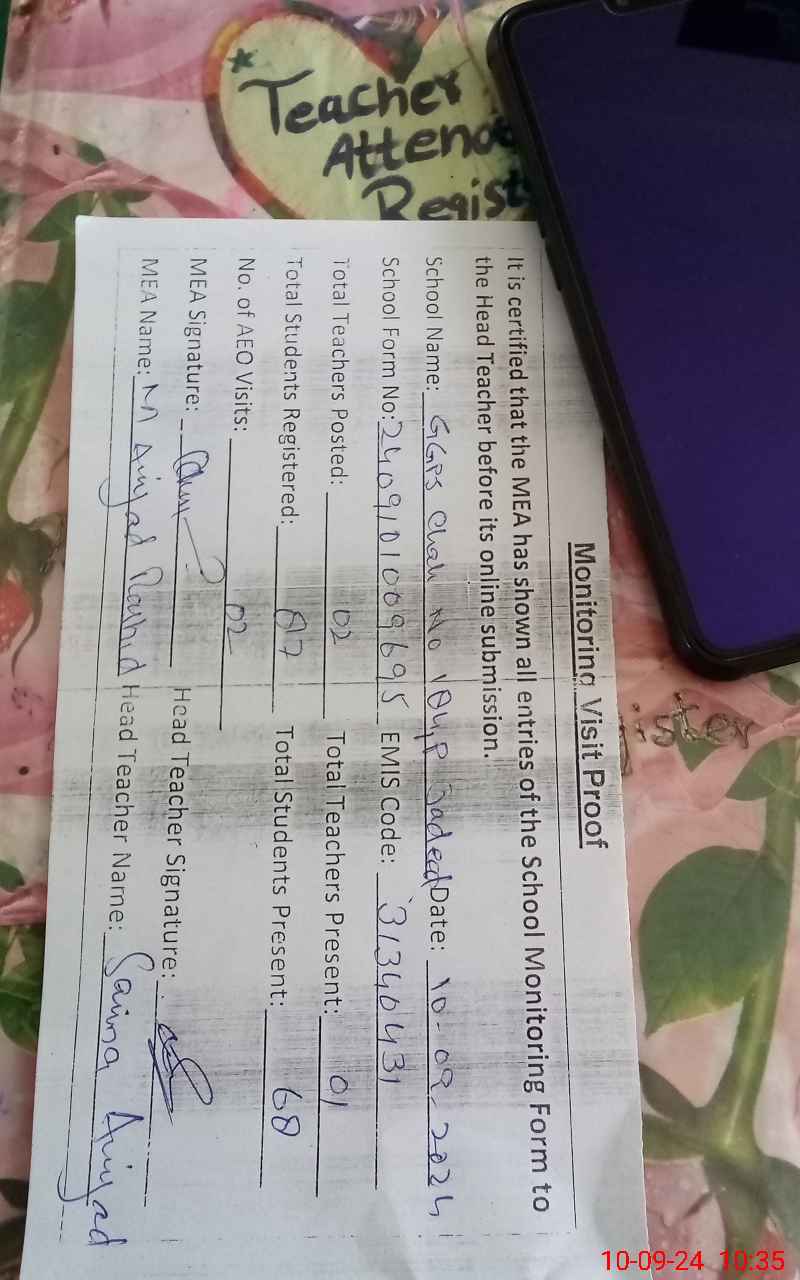 *Teacher
Attend
Regist
ister
Monitoring Visit Proof
It is certified that the MEA has shown all entries of the School Monitoring Form to
the Head Teacher before its online submission.
School Name: GGPS Chak No 104/P Date: 10-09-2024
School Form No: 2409101009695 EMIS Code: 31340431
Total Teachers Posted: 02 Total Teachers Present: 01
Total Students Registered: 87 Total Students Present: 68
No. of AEO Visits: 02
MEA Signature: Head Teacher Signature:
MEA Name: M Amjad Rashid Head Teacher Name: Saima Amjad
10-09-24 10:35